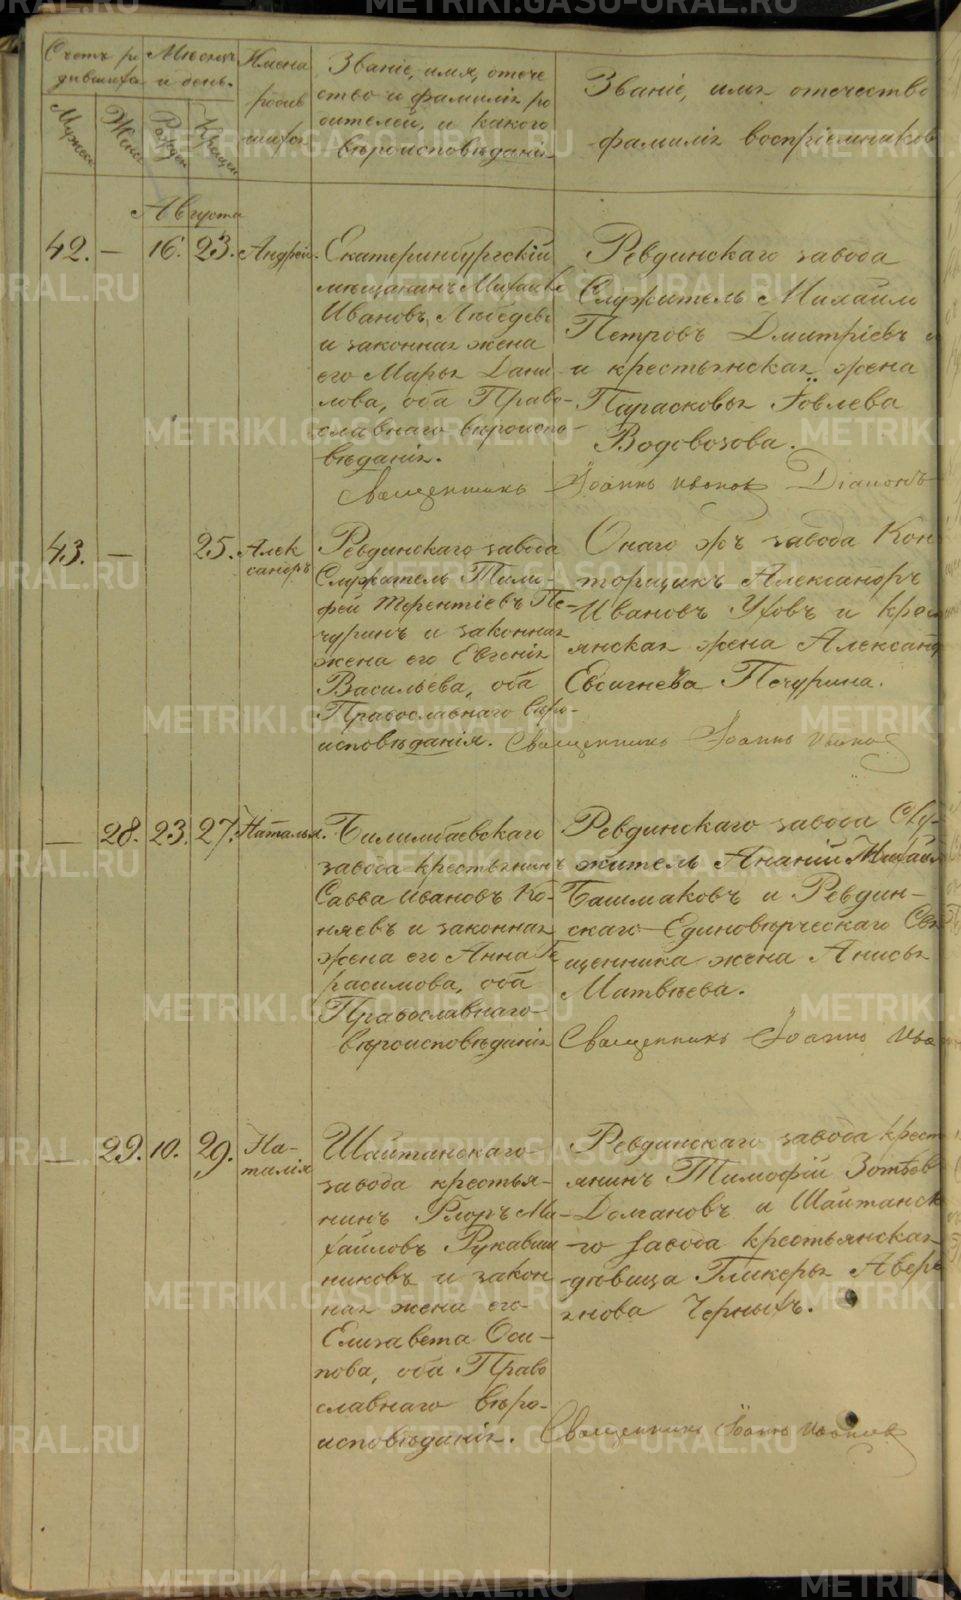 Счетъ ро
дившихся
Мужеск
Женс
Мѣсяцъ
и день.
Рожден
Крещен
Имена
родив
шихся
Званіе, имя, отече
ство и фамилія ро
дителей, и какого
вѣроисповѣданія
Званіе, имя отчество
фамилія воспріемниковъ
Августа
42. — 16. 23. Андрей.
Екатеринбургскій
мѣщанинъ Михаилъ
Ивановъ Лебедевъ
и законная жена
его Марья Дани-
лова, оба Право-
славнаго вѣроиспо-
вѣданія.
Ревдинскаго завода
Служитель Михайло
Петровъ Дмитріевъ
и крестьянская жена
Парасковья Іовлева
Водовозова.
Священникъ Іоаннъ
43. — 25. Алек
сандръ
Ревдинскаго завода
Служитель Тимо-
фей Терентіевъ Пе-
чуринъ и законная
жена его Евгенія
Васильева, оба
Православнаго вѣро-
исповѣданія.
Онаго жъ завода Кон
торщикъ Александръ
Ивановъ Уховъ и крес
янская жена Александ
Евсигнева Печурина.
Священникъ Іоаннъ
— 28. 23. 27. Наталья.
Билимбаевскаго
завода крестьянинъ
Савва Ивановъ Ко-
няевъ и законная
жена его Анна Ге-
расимова, оба
Православнаго
вѣроисповѣданія
Ревдинскаго завода Слу-
житель Ананій Михайл
Башмаковъ и Ревдин-
скаго Единовѣрческаго Свя
щенника жена Анисья
Матвѣева.
Священникъ Іоаннъ
— 29. 10. 29. На-
талія
Шайтанскаго
завода крестья-
нинъ Флоръ Ми-
хайловъ Рукавиш
никовъ и закон
ная жена его
Елизавета Оси-
пова, оба Право
славнаго вѣро-
исповѣданія.
Ревдинскаго завода крест
янинъ Тимофій Зотѣев
Долгановъ и Шайтанск
го завода крестьянская
дѣвица Гликерья Авер
янова Черныхъ.
Священникъ Іоаннъ
METRIKI.GASO-URAL.RU